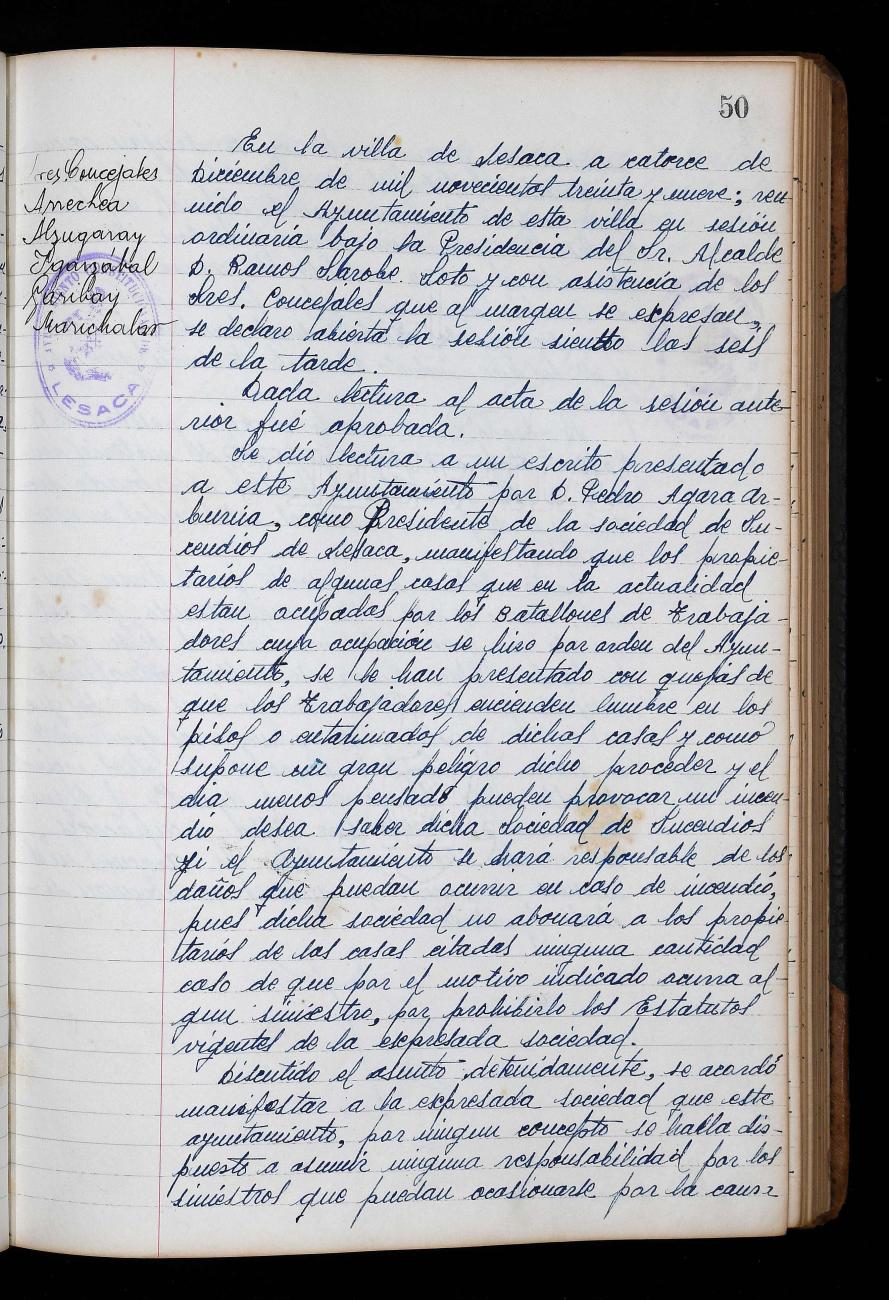 50
Sres Concejales
Arrechea
Alzugaray
Iganzábal
Garibay
Marichalar
LESACA
En la villa de Lesaca a catorce de
Diciembre de mil novecientos treinta y nueve; reu-
nido el Ayuntamiento de esta villa en sesión
ordinaria bajo la Presidencia del Sr. Alcalde
D. Ramos Sarobe Soto y con asistencia de los
Sres. Concejales que al margen se expresan,
se declaro abierta la sesión siendo las seis
de la tarde.
Dada lectura al acta de la sesión ante-
rior fué aprobada.
Se dio lectura a un escrito presentado
a este Ayuntamiento por D. Pedro Agara Ar-
burua, como Presidente de la sociedad de In-
cendios de Lesaca, manifestando que los propie-
tarios de algunas casas que en la actualidad
estan ocupadas por los Batallones de Trabaja-
dores cuya ocupación se hizo por orden del Ayun-
tamiento, se le han presentado con quejas de
que los Trabajadores encienden lumbre en los
pisos o entarimados de dichas casas y como
supone un gran peligro dicho proceder y el
dia menos pensado pueden provocar un incen-
dio desea saber dicha Sociedad de Incendios
si el Ayuntamiento se hará responsable de los
daños que puedan ocurrir en caso de incendio,
pues dicha sociedad no abonará a los propie-
tarios de las casas citadas ninguna cantidad
caso de que por el motivo indicado ocurra al-
gun siniestro, por prohibirlo los Estatutos
vigentes de la expresada sociedad.
Discutido el asunto detenidamente, se acordó
manifestar a la expresada sociedad que este
ayuntamiento, por ningun concepto se halla dis-
puesto a asumir ninguna responsabilidad por los
siniestros que puedan ocasionarse por la causa